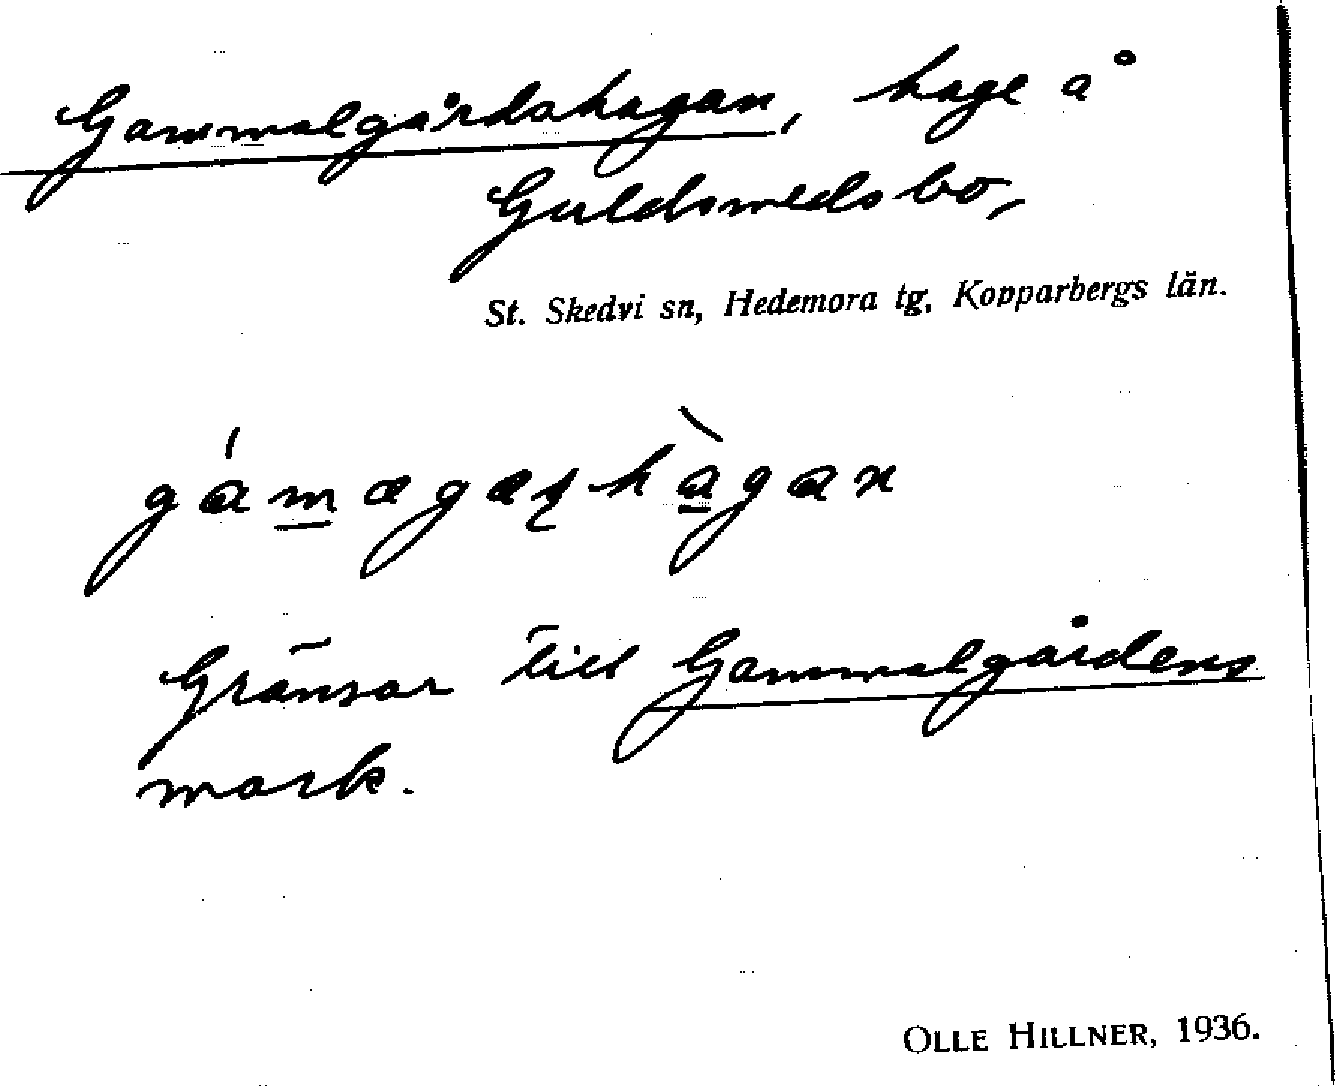 Gammalgårdshagan, hage å
Guldsmedsbo,
St. Skedvi sn, Hedemora tg, Kopparbergs län.
Gränsar till Gammalgårdens
mark.
OLLE HILLNER, 1936.